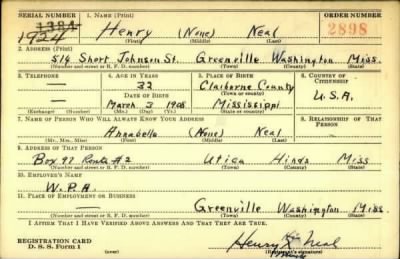 SERIAL NUMBER 1. NAME (Print) ORDER NUMBER
1384
1924 Henry (None) Neal 2898
(First) (Middle) (Last)
2. ADDRESS (Print)
514 Short Johnson St. Greenville Washington Miss.
(Number and street or R. F. D. number) (Town) (County) (State)
3. TELEPHONE 4. AGE IN YEARS 5. PLACE OF BIRTH 6. COUNTRY OF CITIZENSHIP
— 32 Claiborne County
DATE OF BIRTH (Town or county) U.S.A.
— March 3 1908 Mississippi
(Exchange) (Number) (Mo.) (Day) (Yr.) (State or country)
7. NAME OF PERSON WHO WILL ALWAYS KNOW YOUR ADDRESS 8. RELATIONSHIP OF THAT PERSON
Annabella (None) Neal
(Mr., Mrs., Miss) (First) (Middle) (Last)
9. ADDRESS OF THAT PERSON
Box 97 Route #2 Utica Hinds Miss
(Number and street or R. F. D. number) (Town) (County) (State)
10. EMPLOYER'S NAME
W.P.A.
11. PLACE OF EMPLOYMENT OR BUSINESS
Greenville Washington Miss.
(Number and street or R. F. D. number) (Town) (County) (State)
I AFFIRM THAT I HAVE VERIFIED ABOVE ANSWERS AND THAT THEY ARE TRUE.
REGISTRATION CARD
D. S. S. Form 1 (over) Henry Neal
(Registrant's signature)